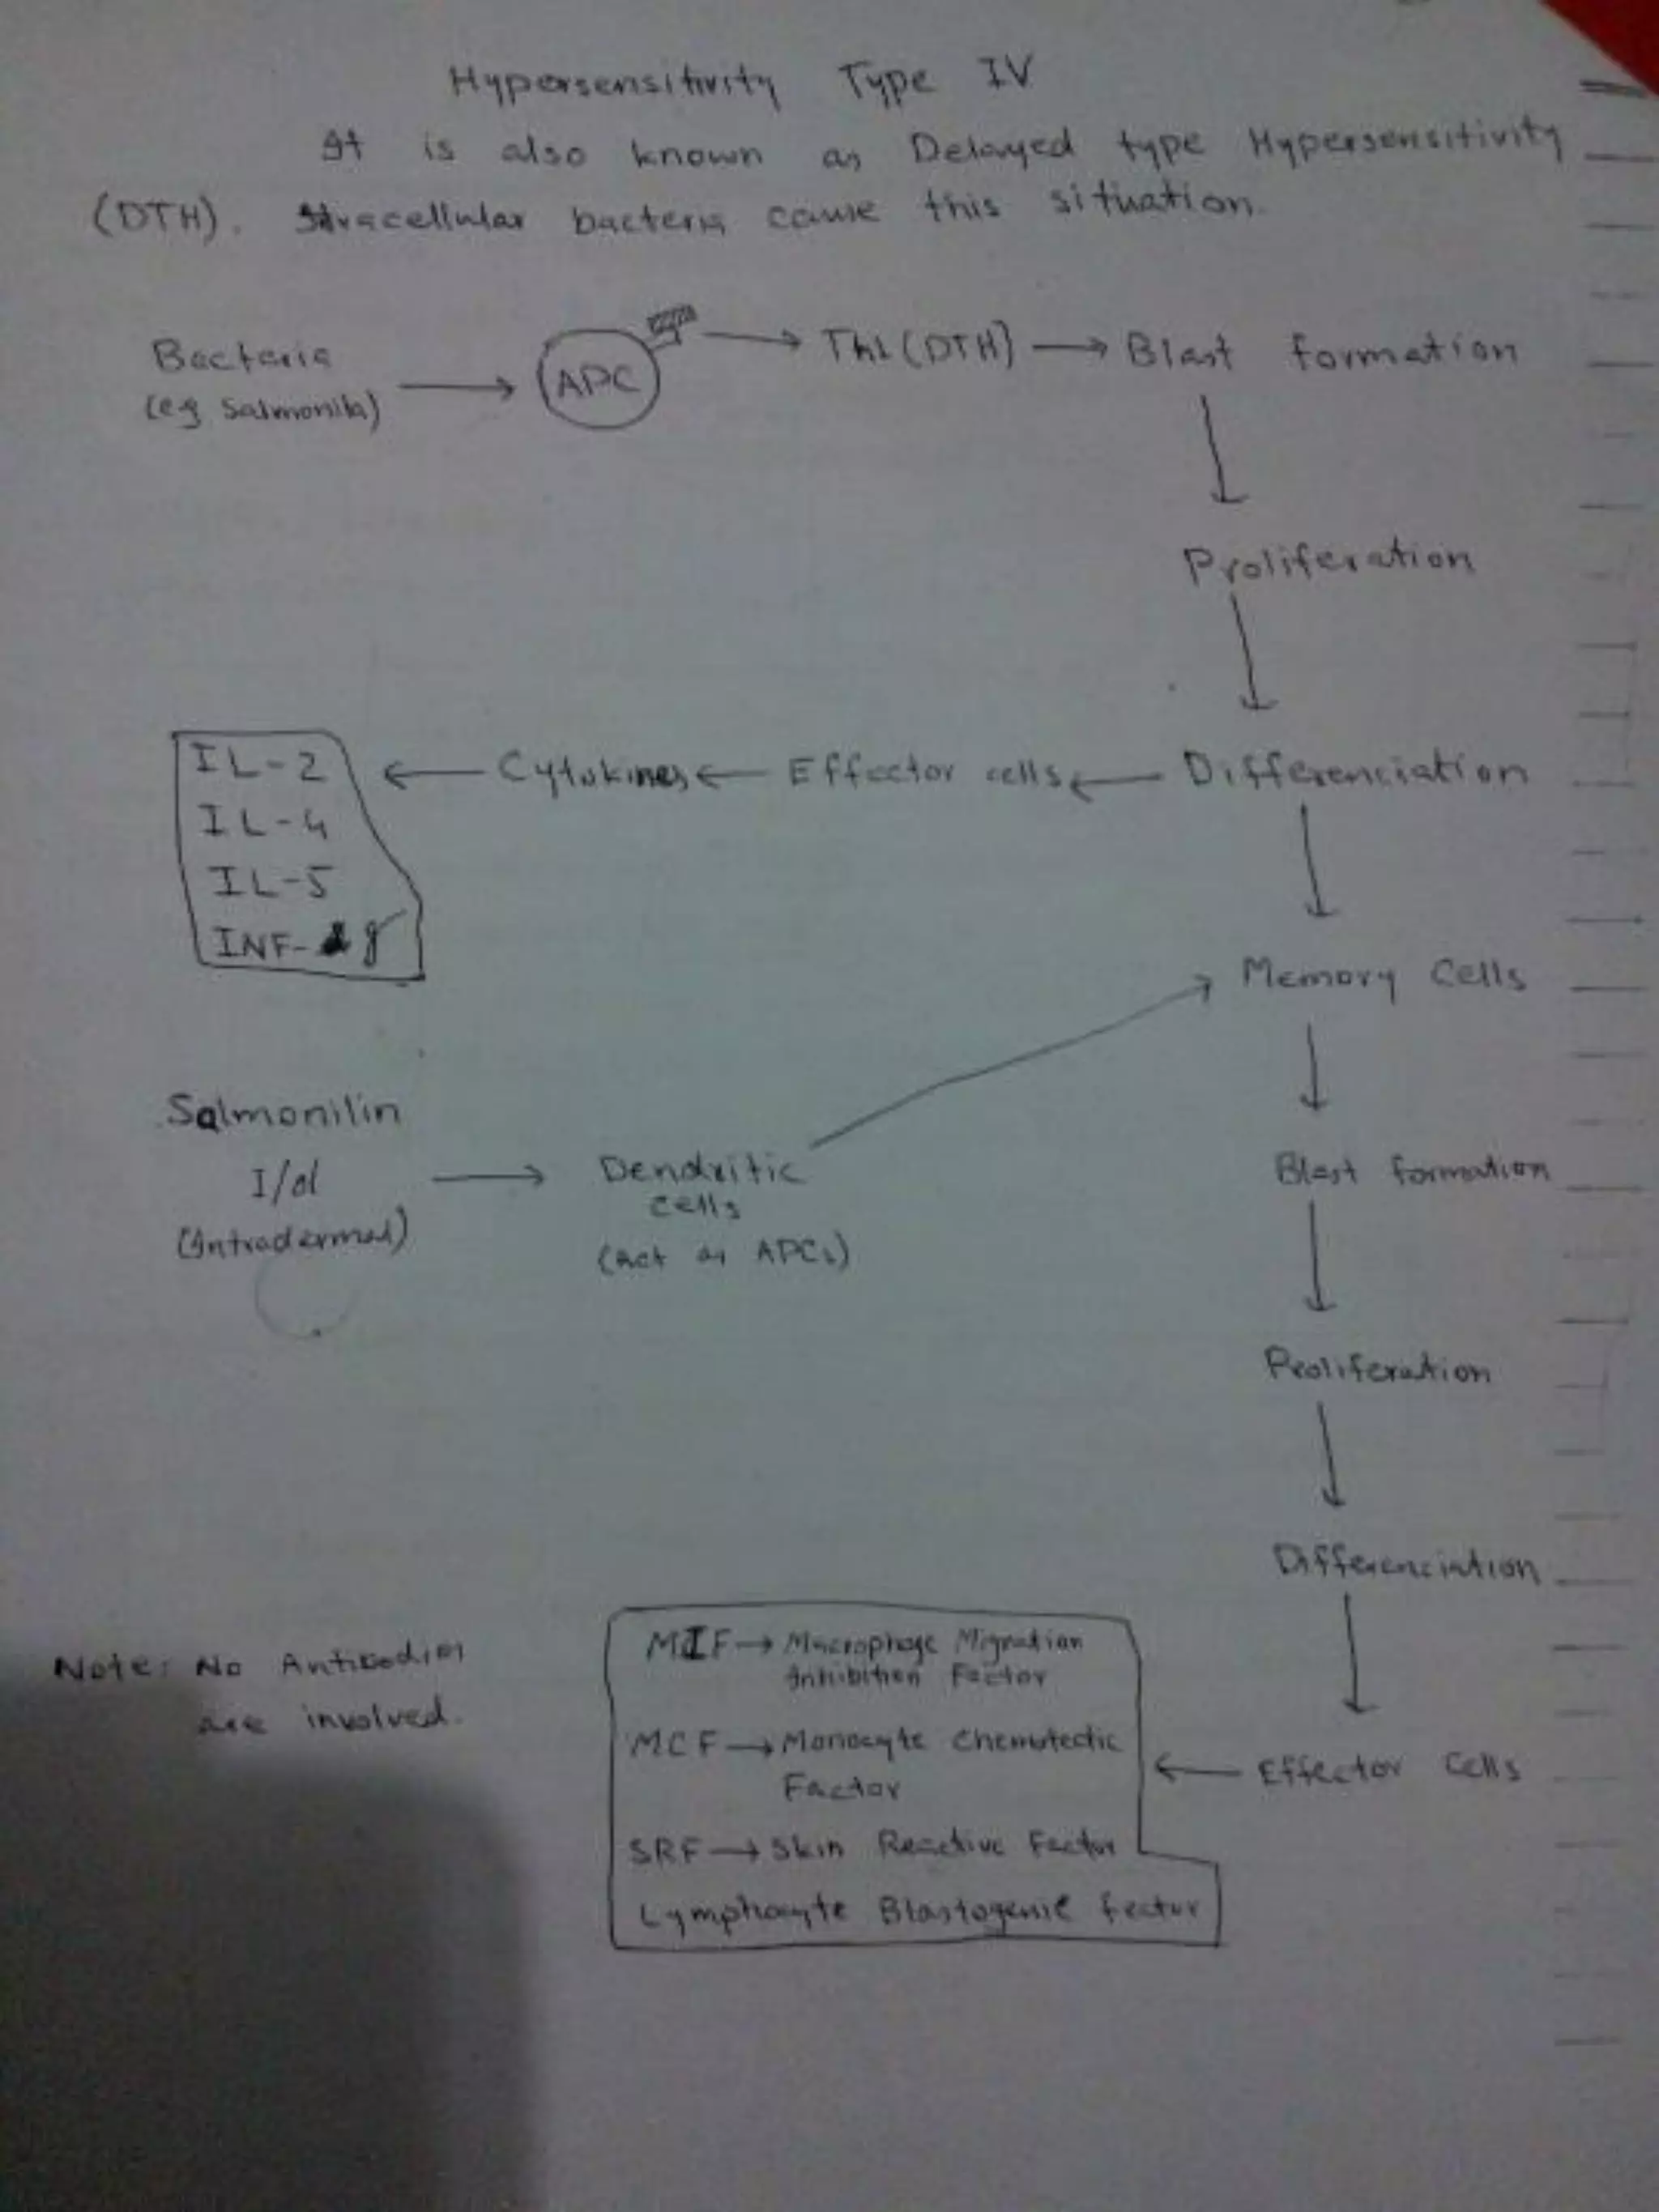 Hypersensitivity Type IV
It is also known as Delayed type Hypersensitivity
(DTH). Itracellular bacteria cause this situation.
Bacteria
(eg Salmonila)
APC
Th1 (DTH)
Blast formation
Proliferation
Differenciation
Effector cells
Cytokines
IL-2
IL-4
IL-5
INF-γ
Memory Cells
Salmonilin
I/d
(Intradermal)
Dendritic
cells
(Act as APCs)
Blast formation
Proliferation
Differenciation
Effector Cells
MIF → Macrophage Migration
Inhibition Factor
MCF → Monocyte Chemotectic
Factor
SRF → Skin Reactive Factor
Lymphocyte Blastogenic fector
Note: No Antibodies
are involved.